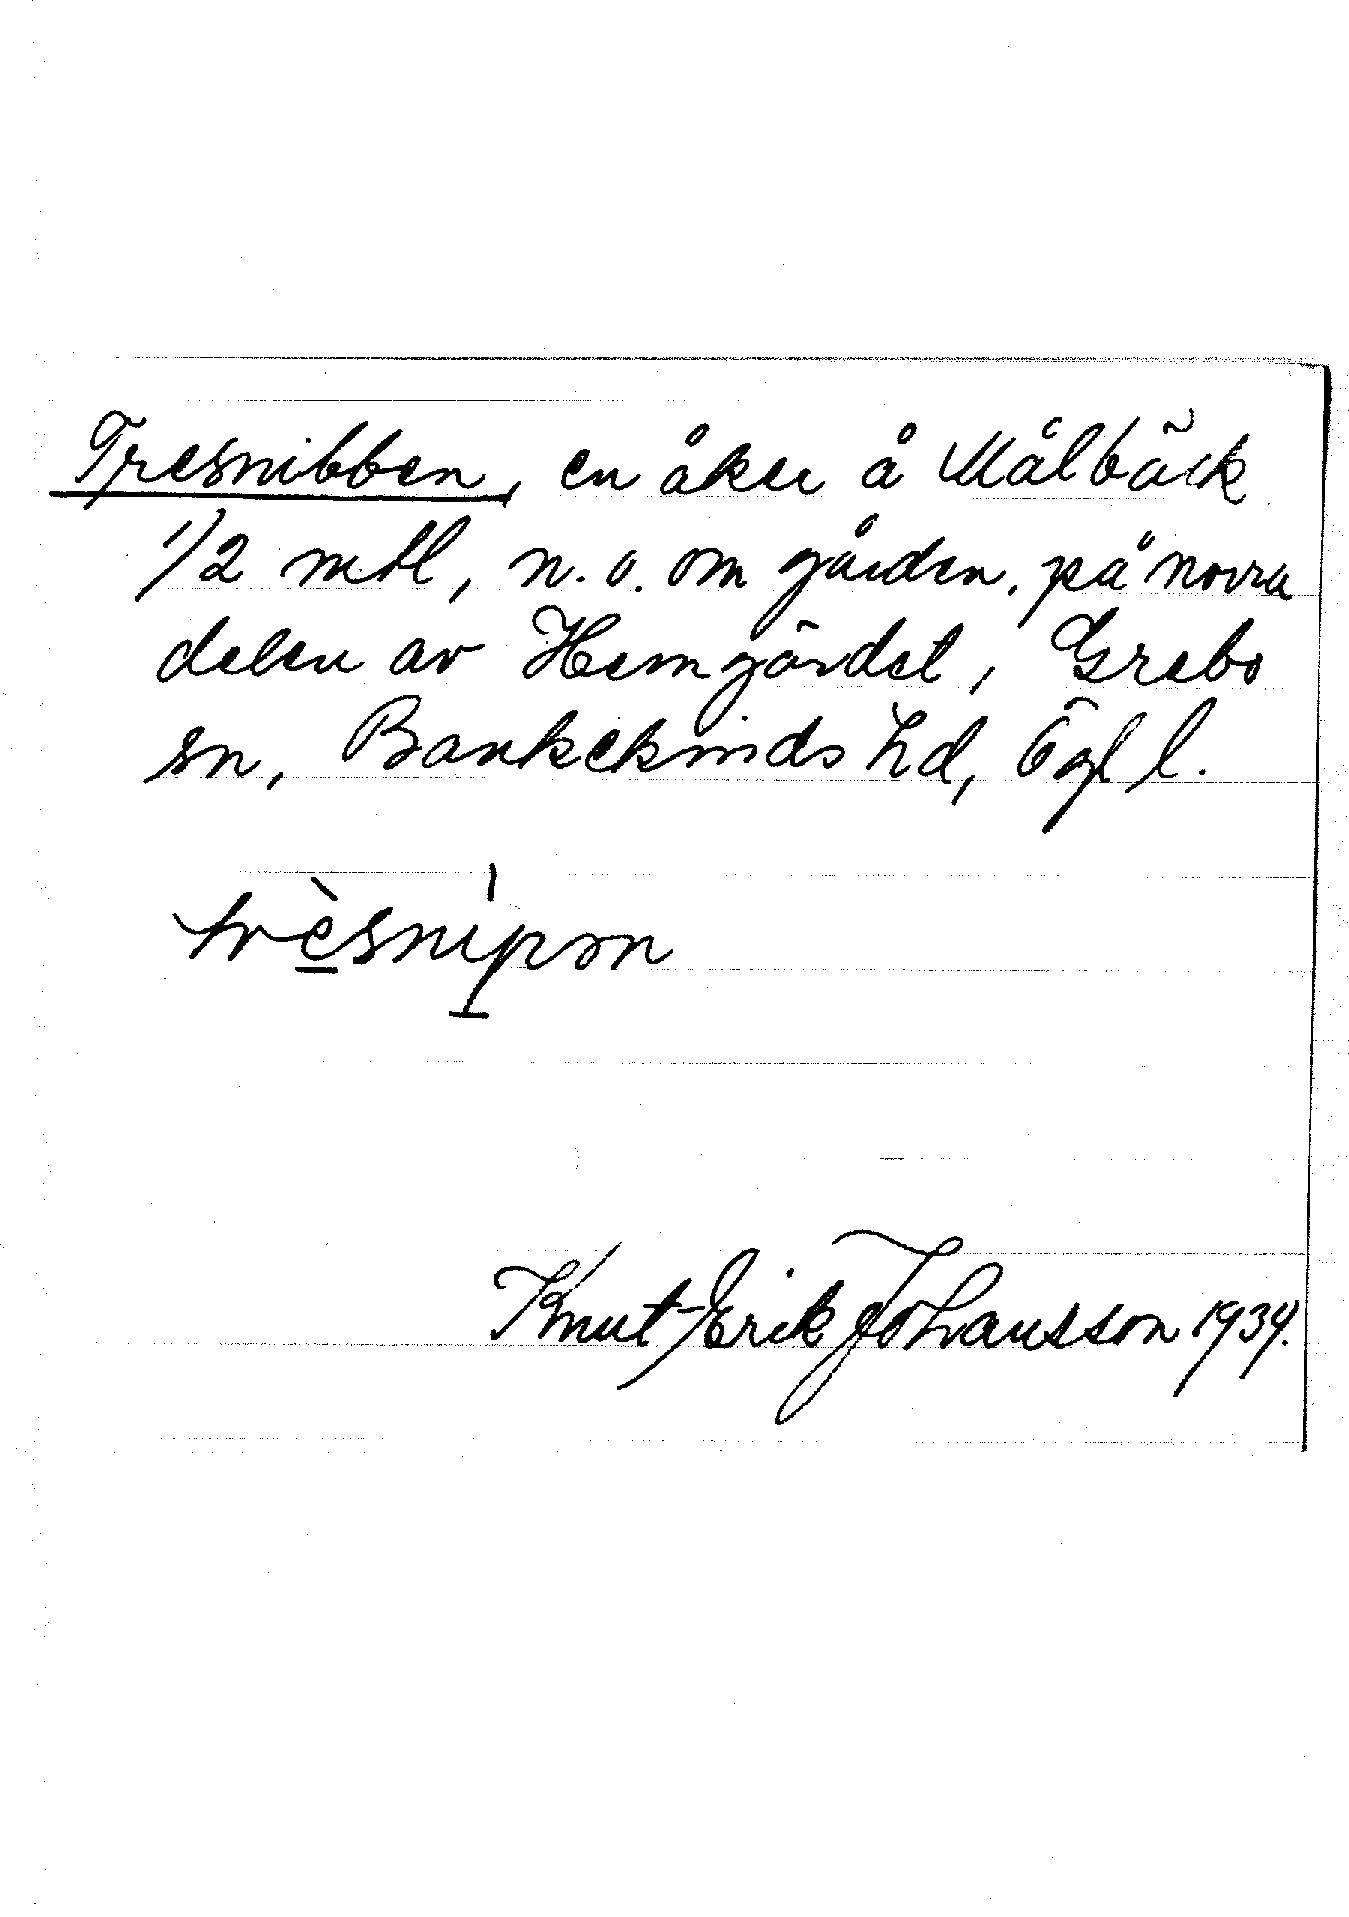 Tresnibben, en åker å Målbäck
1/2 mtl, n.o. om gården, på norra
delen av Hemgärdet, Grebo
sn, Bankekinds hd, Ögl l.
trèsnípon
Knut-Erik Johansson 1934.